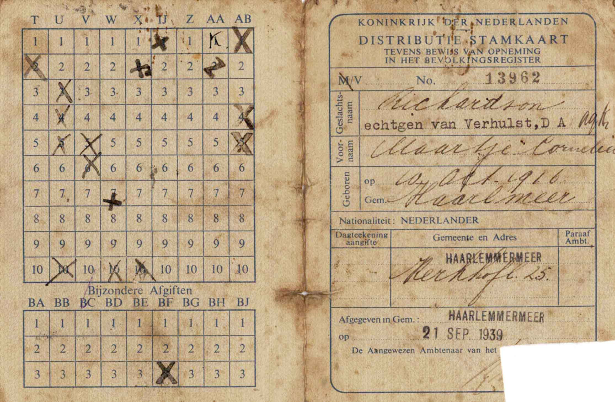 T U V W X IJ Z AA AB
1 1 1 1 1 1 1 1 1
2 2 2 2 2 2 2 2 2
3 3 3 3 3 3 3 3 3
4 4 4 4 4 4 4 4 4
5 5 5 5 5 5 5 5 5
6 6 6 6 6 6 6 6 6
7 7 7 7 7 7 7 7 7
8 8 8 8 8 8 8 8 8
9 9 9 9 9 9 9 9 9
10 10 10 10 10 10 10 10 10
Bijzondere Afgiften
BA BB BC BD BE BF BG BH BJ
1 1 1 1 1 1 1 1 1
2 2 2 2 2 2 2 2 2
3 3 3 3 3 3 3 3 3
KONINKRIJK DER NEDERLANDEN
DISTRIBUTIE-STAMKAART
TEVENS BEWIJS VAN OPNEMING
IN HET BEVOLKINGSREGISTER
M/V No. 13962
Geslachtsnaam Richardson
echtgen van Verhulst, D A
Voornaam Maartje Cornelia
Geboren op 10 Oct. 1916
Gem. Haarlemmeer
Nationaliteit: NEDERLANDER
Dagteekening aangifte Gemeente en Adres Paraaf Ambt.
HAARLEMMERMEER
Kerkhofl. 25.
Afgegeven in Gem.: HAARLEMMERMEER
op 21 SEP 1939
De Aangewezen Ambtenaar van het